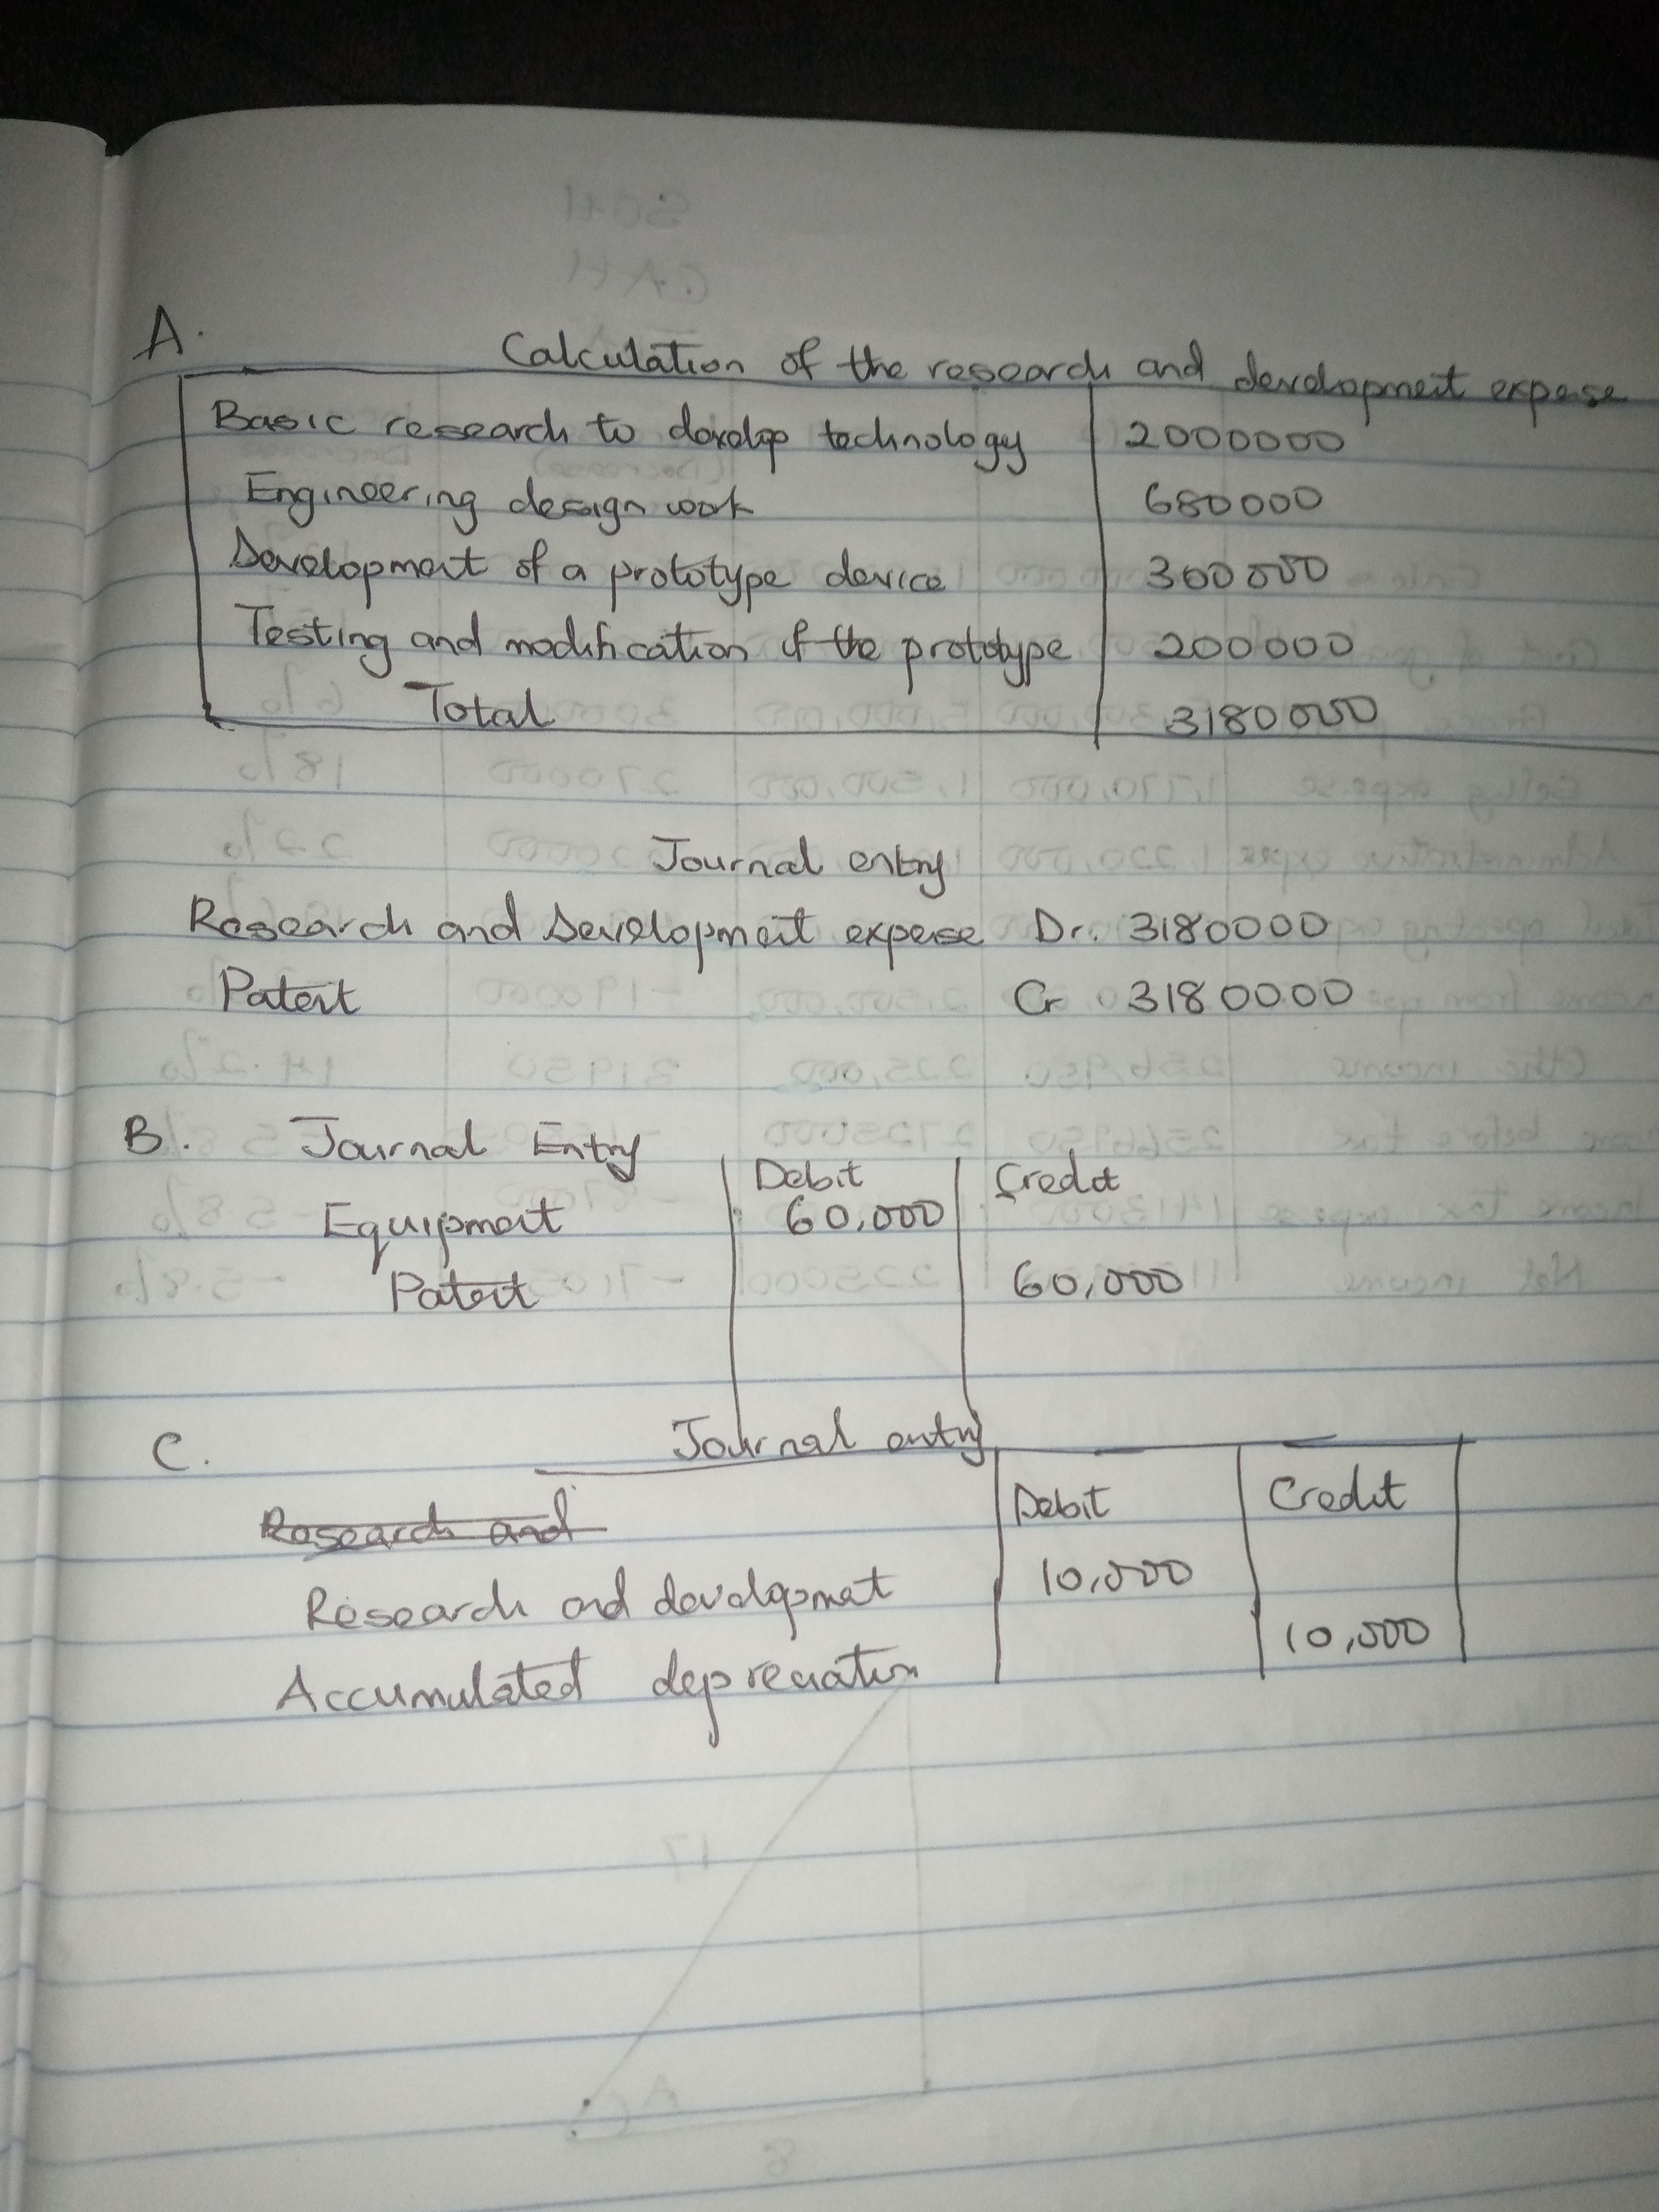 A.
Calculation of the research and development expense
Basic research to develop technology 2000000
Engineering design work 680000
Development of a prototype device 300000
Testing and modification of the prototype 200000
Total 3180000
Journal entry
Research and Development expense Dr. 3180000
Patent Cr 3180000
B. Journal Entry
Debit Credit
Equipment 60,000
Patent 60,000
C. Journal entry
Debit Credit
Research and
Research and development 10,000
Accumulated depreciation 10,000